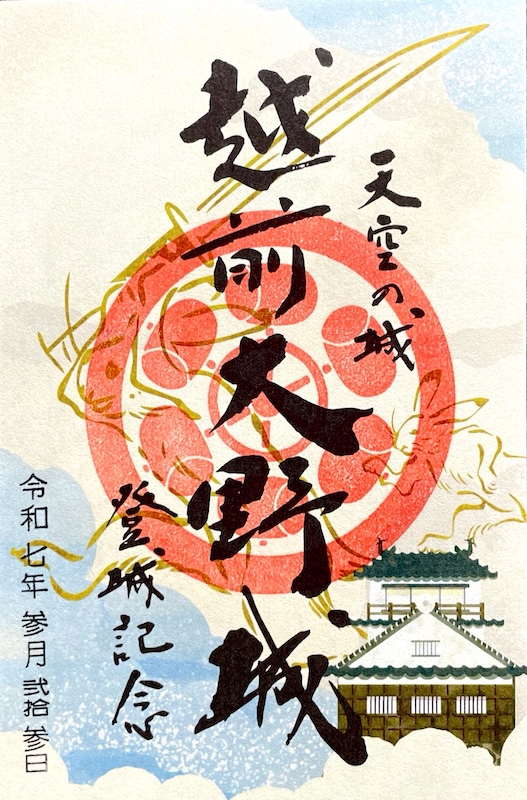 天空の城
越前大野城
登城記念
令和七年参月弐拾参日